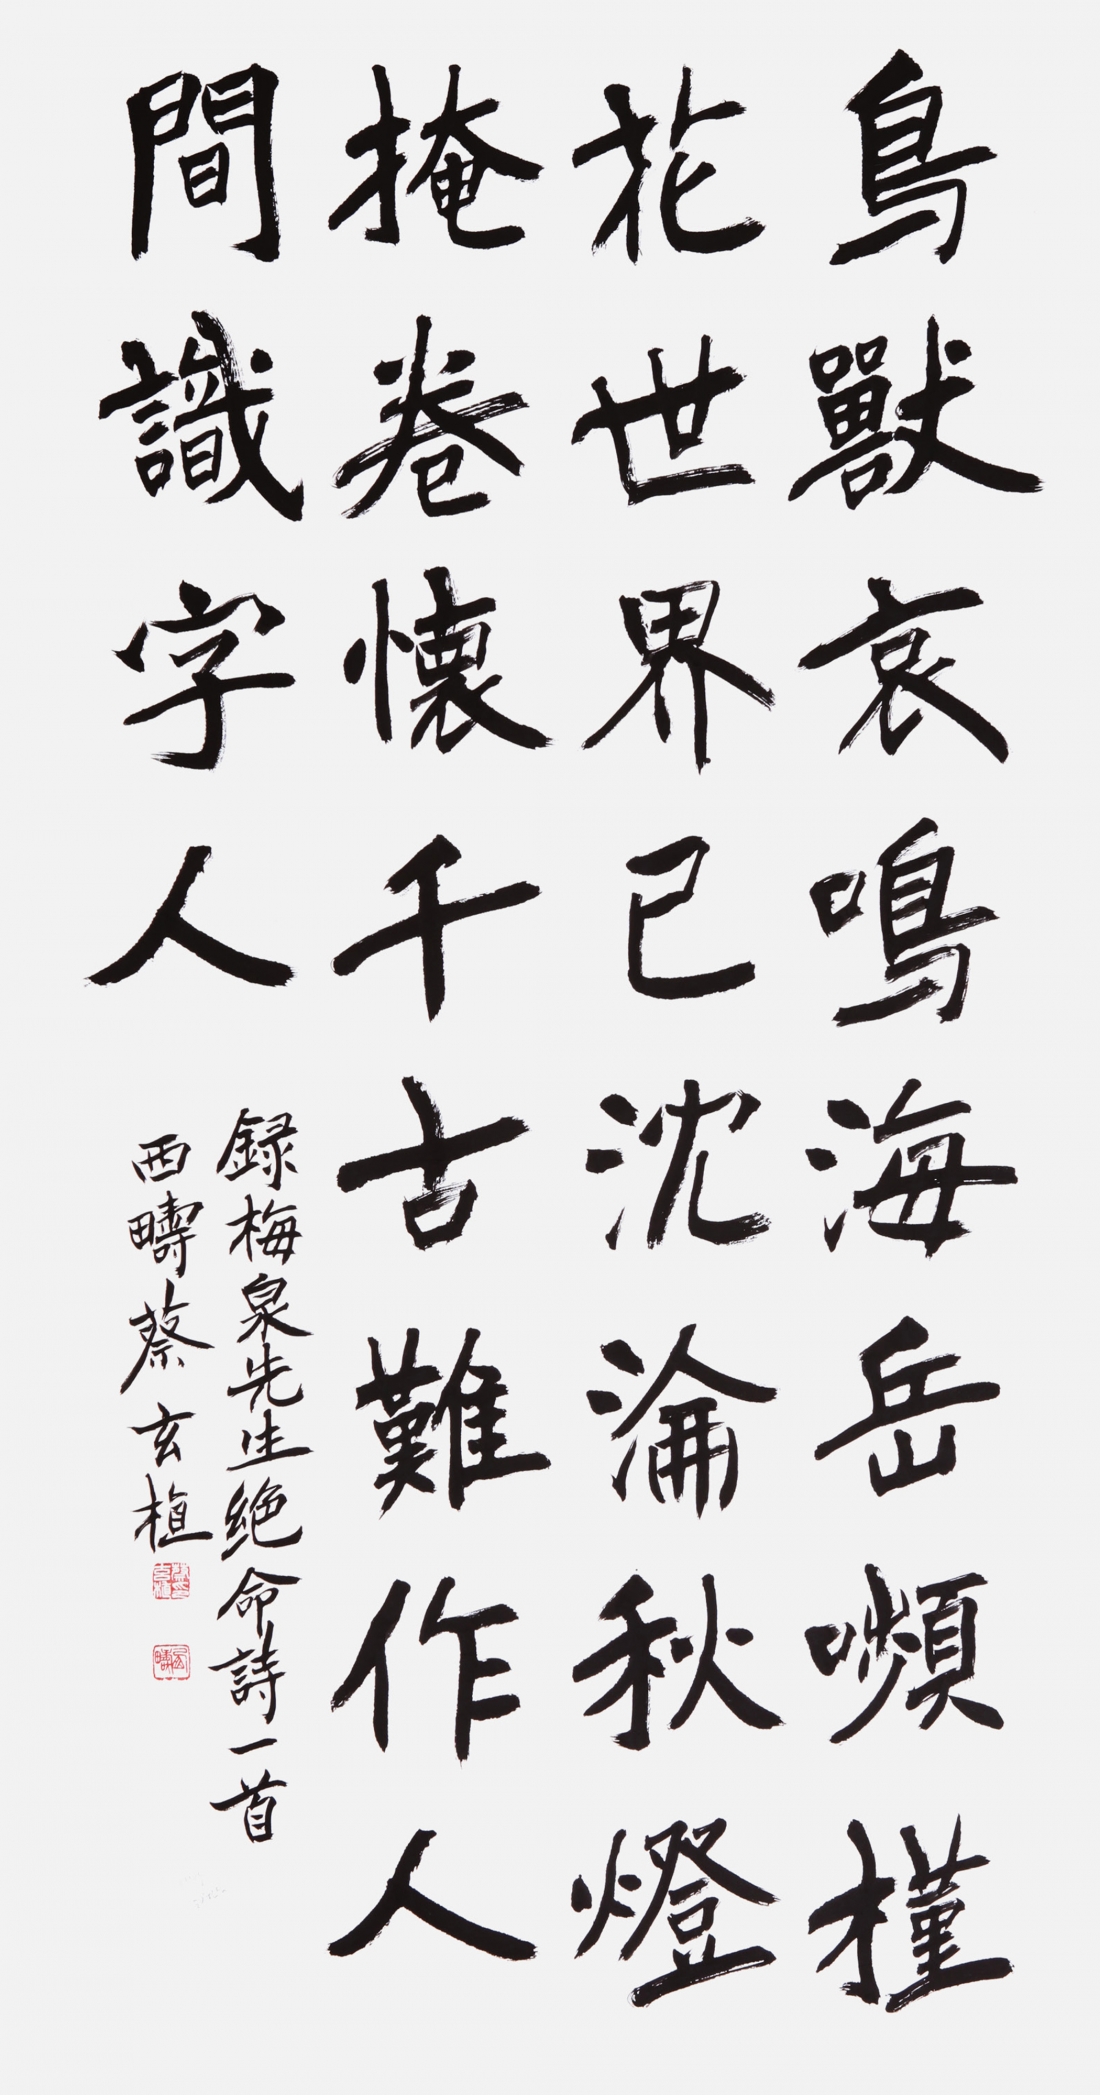 鳥獸哀鳴海岳嚬槿
花世界已沈淪秋燈
掩卷懷千古難作人
間識字人
録梅泉先生絶命詩一首
西疇蔡玄植